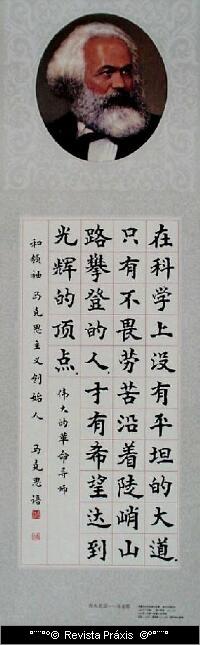 在科学上没有平坦的大道.
只有不畏劳苦沿着陡峭山
路攀登的人,才有希望达到
光辉的顶点.
伟大的革命导师
和领袖 马克思主义创始人 马克思语
© Revista Práxis ©